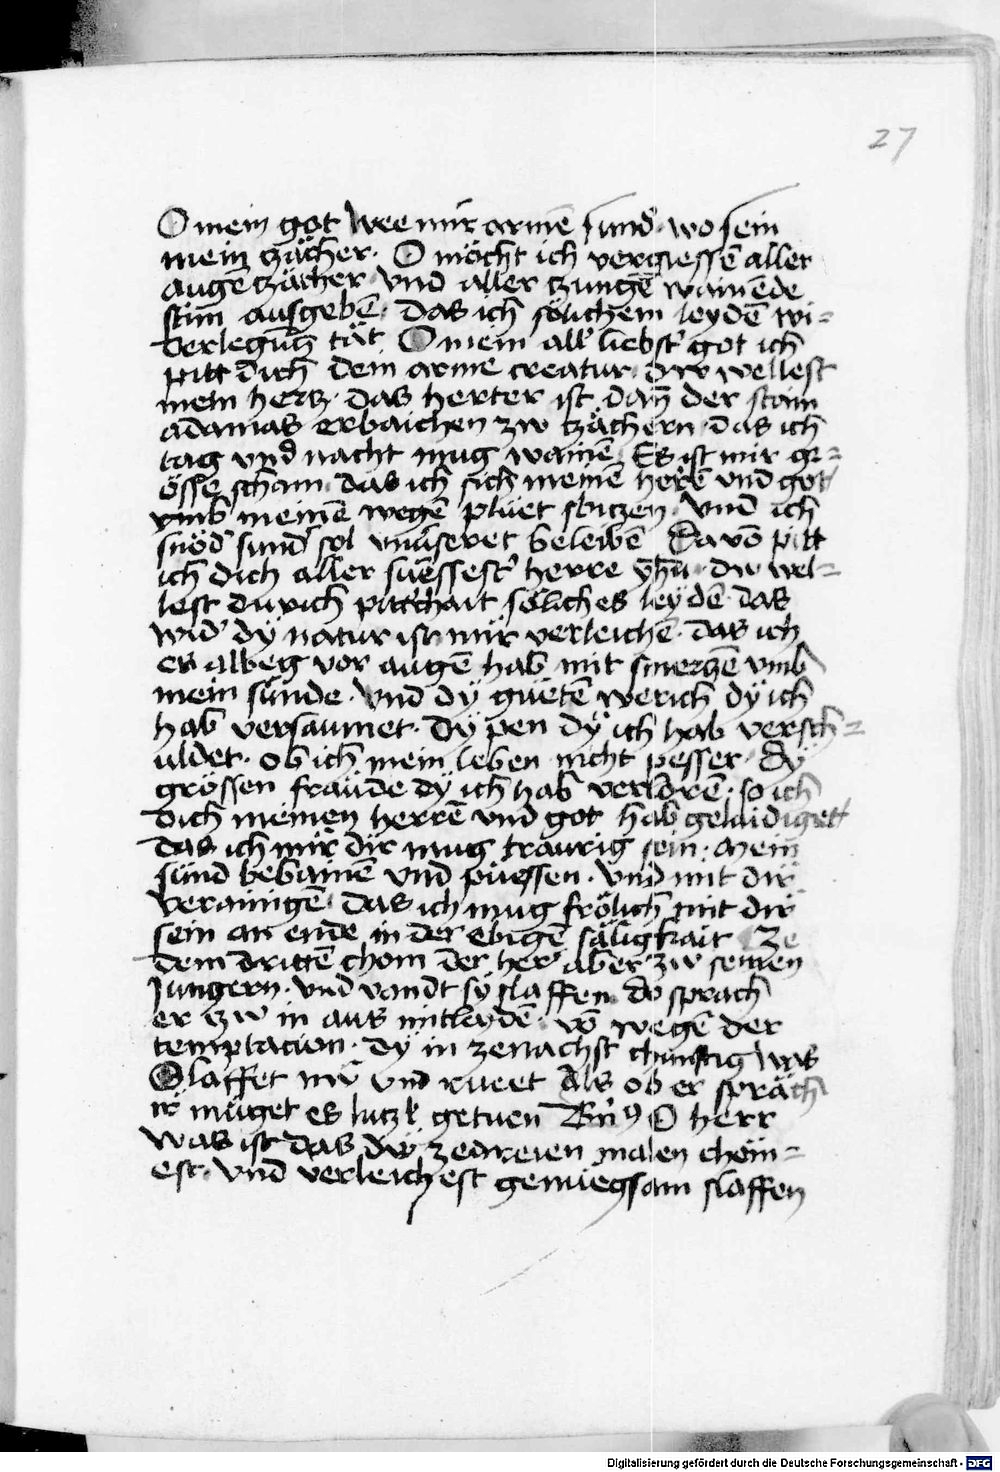 27
O mein got wee mir armē sund᷑ · wo sein
mein zäher · O möcht ich vergiessē aller
augē tzächer vnd aller tzungē wainēde
stim̄ ausgebē · das ich sölichem leydē wi=
derlegūg tät O mein all᷑ liebst᷑ got ich
pitt dich dein arme creatur · dw wellest
mein hertz · das herter ist dan̄ der stain
adamas erbaichen zw tzächern · das ich
tag vnd nacht mug wainē Es ist mir gr=
össe scham · das ich sich meinē herrē vnd got
vmb meinē wegē plüet sbitzen · vnd ich
snöd᷑ sund᷑ sol beleibē Da vō pitt
ich dich aller suessest᷑ herre yh̄u · dw wel=
lest durich pitt᷑chait söliches leydē · das
wid᷑ dÿ natur ist mir verleichē · das ich
es albeg vor augē hab mit smerczē vmb
mein sünde · vnd dÿ güetē werich dÿ ich
hab versaumet · dÿ pen dÿ ich hab versch=
uldet · ob ich mein leben nicht pesser · dÿ
grössen fräude dÿ ich hab verlorē · so ich
dich meinen herrē vnd got hab gelaidiget
das ich mit dir mug traurig sein · mein̄
sünd bebainē vnd püessen · vnd mit dir
verainigē · das ich mug frölich mit dir
sein an ende in der ebigē säligkait Ze
dem drittē chom der her᷑ aber zw seinen
Jungern · vnd vandt sÿ slaffen do sprach
er zw in aus mitleydē · vō wegē der
temptacion · dÿ in zenachst chunftig was
Slaffet nw vnd rueet Als ob er spräch
ir müget es lutzl getuen O herr
was ist das dw ze dreien malen chöm=
est · vnd verleichest genüegsam slaffen
Digitalisierung gefördert durch die Deutsche Forschungsgemeinschaft - DFG